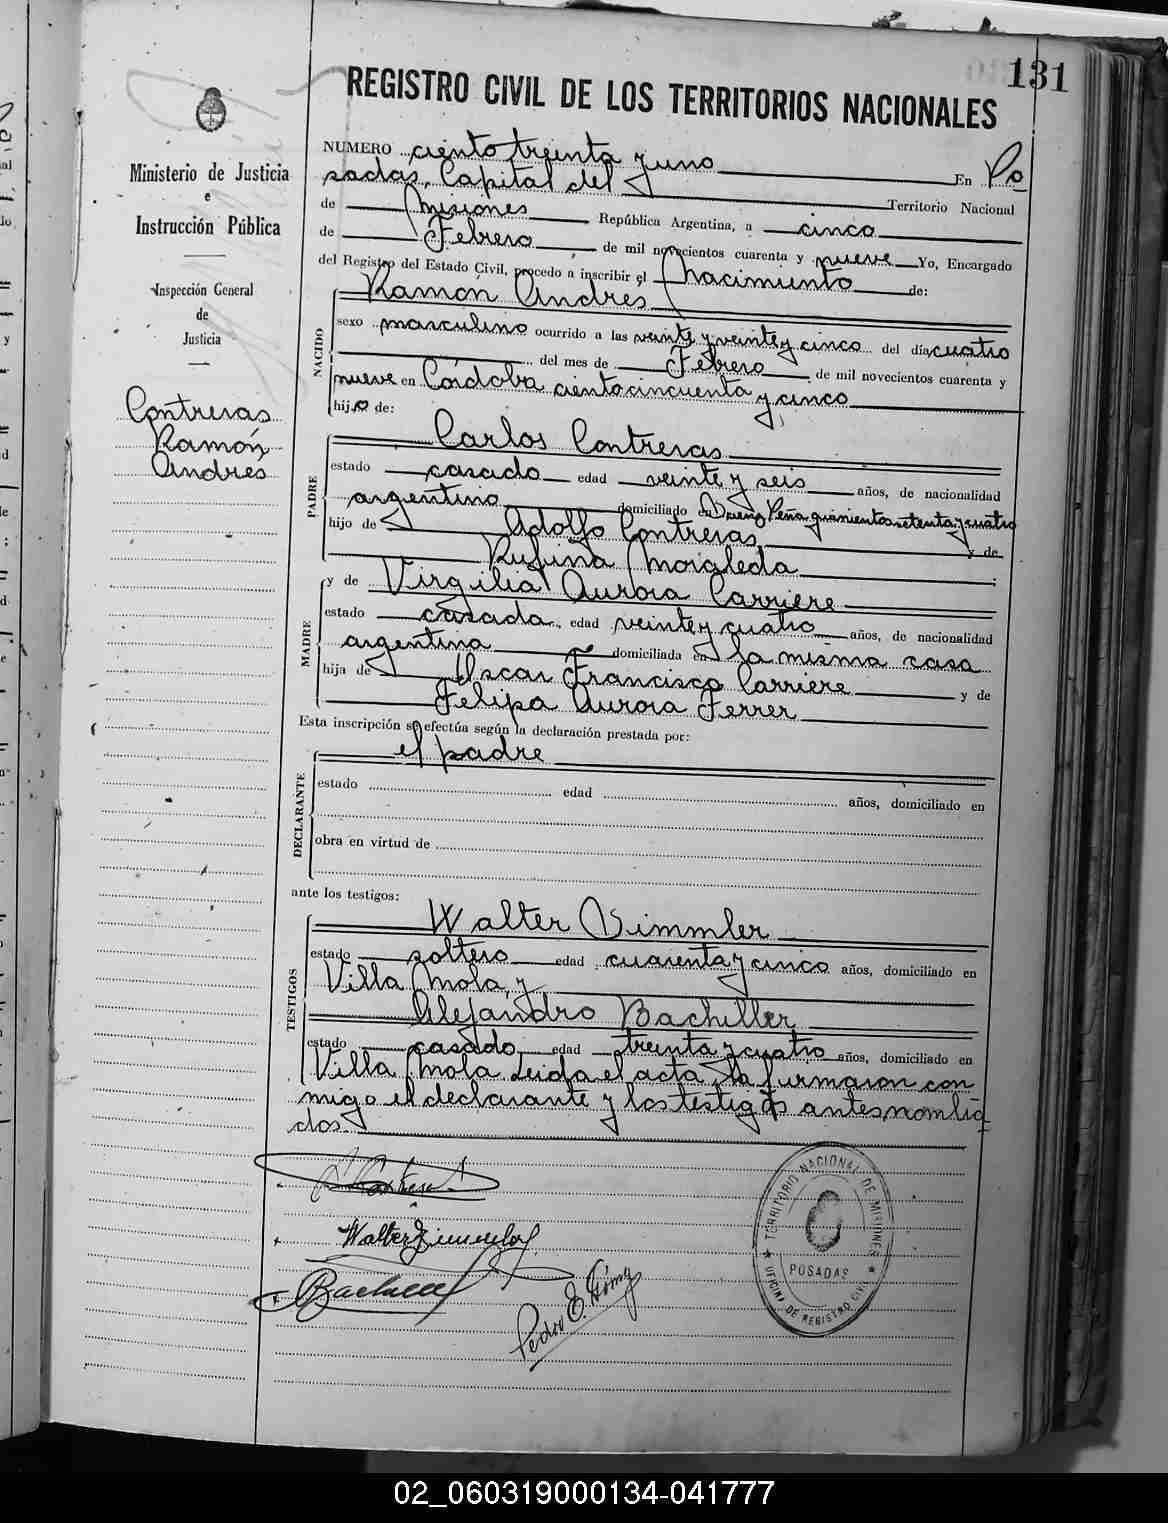 131
REGISTRO CIVIL DE LOS TERRITORIOS NACIONALES
Ministerio de Justicia
e
Instrucción Pública
Inspección General
de
Justicia
Contreras
Ramón
Andres
NUMERO ciento treinta y uno En Po
sadas, Capital del Territorio Nacional
de Misiones República Argentina, a cinco
de Febrero de mil novecientos cuarenta y nueve Yo, Encargado
del Registro del Estado Civil, procedo a inscribir el nacimiento de:
NACIDO
Ramón Andres
sexo masculino ocurrido a las veinte y veinte y cinco del día cuatro
del mes de Febrero de mil novecientos cuarenta y
nueve en Córdoba ciento cincuenta y cinco
hijo de:
PADRE
Carlos Contreras
estado casado edad veinte y seis años, de nacionalidad
argentino domiciliado en Saenz Peña quinientos setenta y cuatro
hijo de Adolfo Contreras y de
Rufina Moigleda
MADRE
y de Virgilia Aurora Carriere
estado casada, edad veinte y cuatro años, de nacionalidad
argentina domiciliada en la misma casa
hija de Oscar Francisco Carriere y de
Felipa Aurora Ferrer
Esta inscripción se efectúa según la declaración prestada por:
DECLARANTE
el padre
estado edad años, domiciliado en
obra en virtud de
ante los testigos:
TESTIGOS
Walter Simmler
estado soltero edad cuarenta y cinco años, domiciliado en
Villa Mola, y
Alejandro Bachiller
estado casado, edad treinta y cuatro años, domiciliado en
Villa Mola. Leida el acta, la firmaron con
migo el declarante y los testigos antes nombra
dos.
Walter
Pedro E. Gómez
TERRITORIO NACIONAL DE MISIONES
POSADAS
OFICINA DE REGISTRO CIVIL
02_060319000134-041777